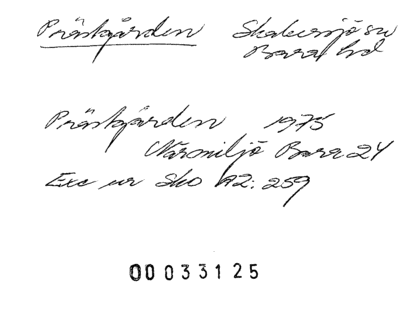 Prästgården Skabersjö sn
Bara hd
Prästgården 1975
Närmiljö Bara 24
Exc ur Sko A2:259
0003 3125